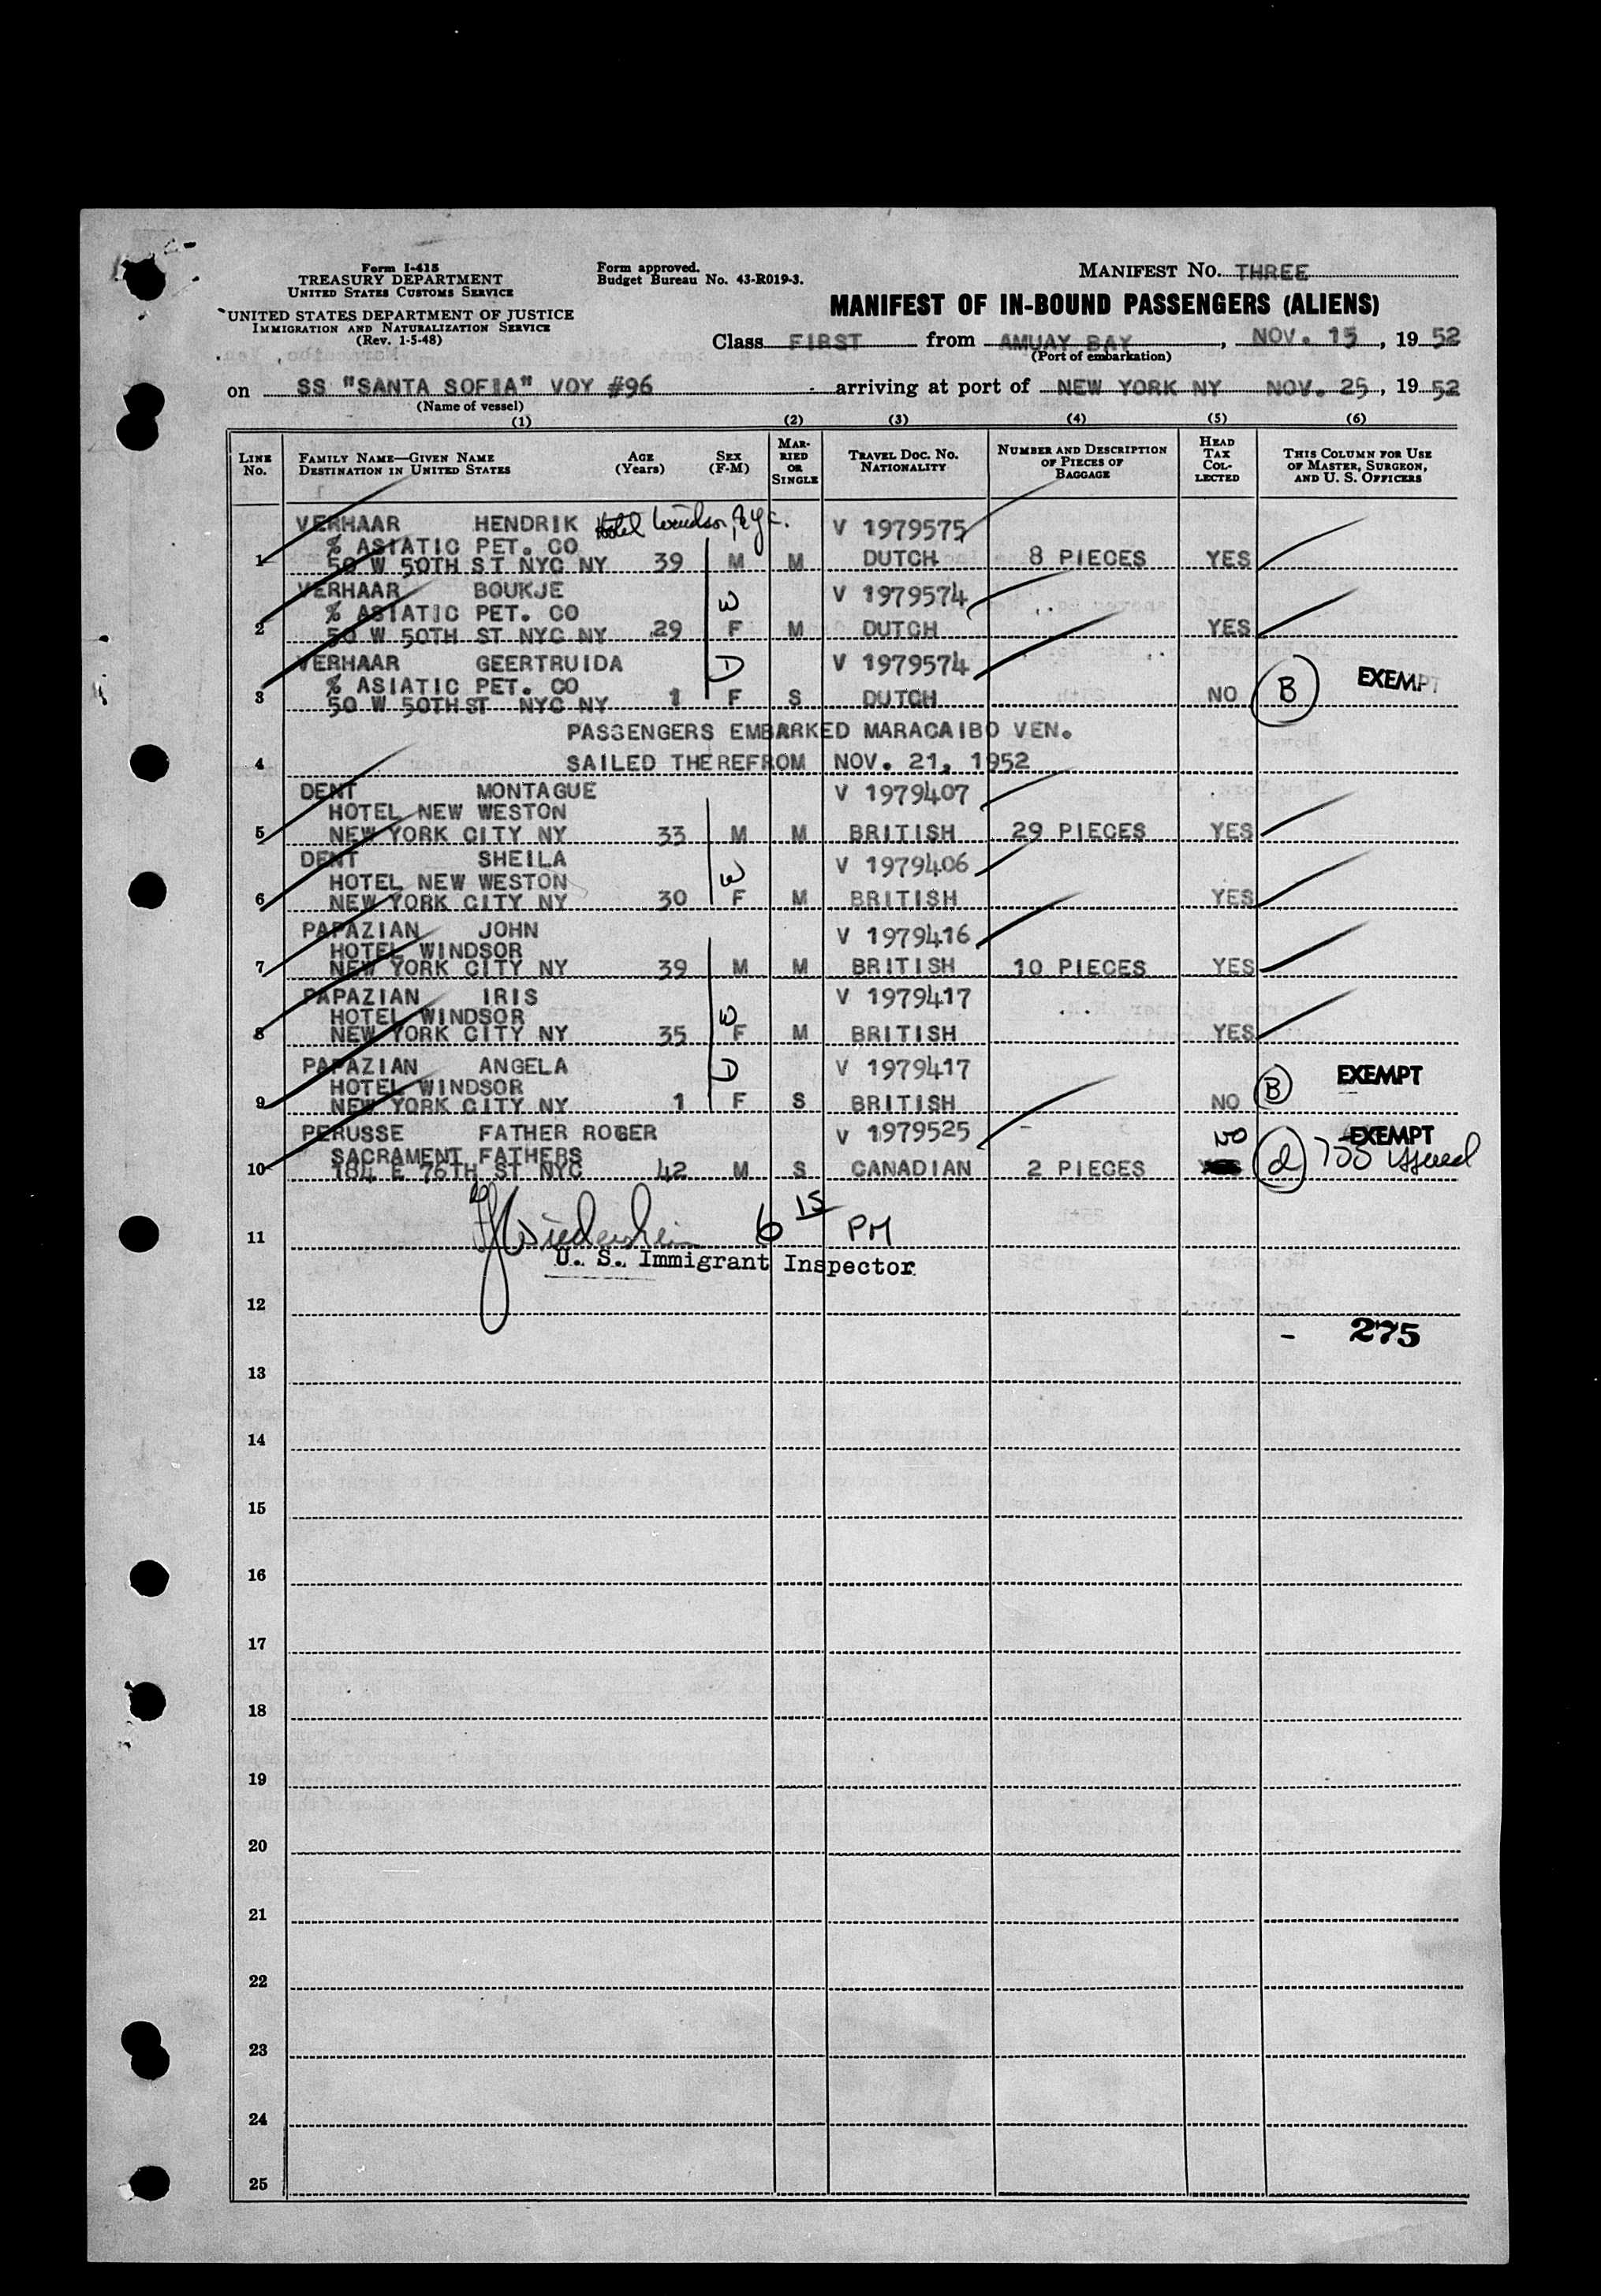 Form I-415
TREASURY DEPARTMENT
UNITED STATES CUSTOMS SERVICE
UNITED STATES DEPARTMENT OF JUSTICE
IMMIGRATION AND NATURALIZATION SERVICE
(Rev. 1-5-48)
Form approved.
Budget Bureau No. 43-R019-3.
MANIFEST NO. THREE
MANIFEST OF IN-BOUND PASSENGERS (ALIENS)
Class FIRST from AMUAY BAY, NOV. 15, 19 52
(Port of embarkation)
on SS "SANTA SOFIA" VOY #96 arriving at port of NEW YORK NY NOV. 25, 19 52
(Name of vessel)
(1) (2) (3) (4) (5) (6)
LINE NO. FAMILY NAME—GIVEN NAME DESTINATION IN UNITED STATES AGE (YEARS) SEX (F-M) MARRIED OR SINGLE TRAVEL DOC. NO. NATIONALITY NUMBER AND DESCRIPTION OF PIECES OF BAGGAGE HEAD TAX COLLECTED THIS COLUMN FOR USE OF MASTER, SURGEON, AND U. S. OFFICERS
VERHAAR HENDRIK Hotel Windsor, NYC. V 1979575
% ASIATIC PET. CO
1 50 W 50TH ST NYC NY 39 M M DUTCH 8 PIECES YES
VERHAAR BOUKJE W V 1979574
% ASIATIC PET. CO
2 50 W 50TH ST NYC NY 29 F M DUTCH YES
VERHAAR GEERTRUIDA D V 1979574 B EXEMPT
% ASIATIC PET. CO
3 50 W 50TH ST NYC NY 1 F S DUTCH NO
PASSENGERS EMBARKED MARACAIBO VEN.
4 SAILED THEREFROM NOV. 21, 1952
DENT MONTAGUE V 1979407
HOTEL NEW WESTON
5 NEW YORK CITY NY 33 M M BRITISH 29 PIECES YES
DENT SHEILA W V 1979406
HOTEL NEW WESTON
6 NEW YORK CITY NY 30 F M BRITISH YES
PAPAZIAN JOHN V 1979416
HOTEL WINDSOR
7 NEW YORK CITY NY 39 M M BRITISH 10 PIECES YES
PAPAZIAN IRIS W V 1979417
HOTEL WINDSOR
8 NEW YORK CITY NY 35 F M BRITISH YES
PAPAZIAN ANGELA D V 1979417 B EXEMPT
HOTEL WINDSOR
9 NEW YORK CITY NY 1 F S BRITISH NO
PERUSSE FATHER ROGER V 1979525 NO EXEMPT
SACRAMENT FATHERS d 755 issued
10 184 E 76TH ST NYC 42 M S CANADIAN 2 PIECES
6 15 PM
11
U. S. Immigrant Inspector
12
- 275
13
14
15
16
17
18
19
20
21
22
23
24
25